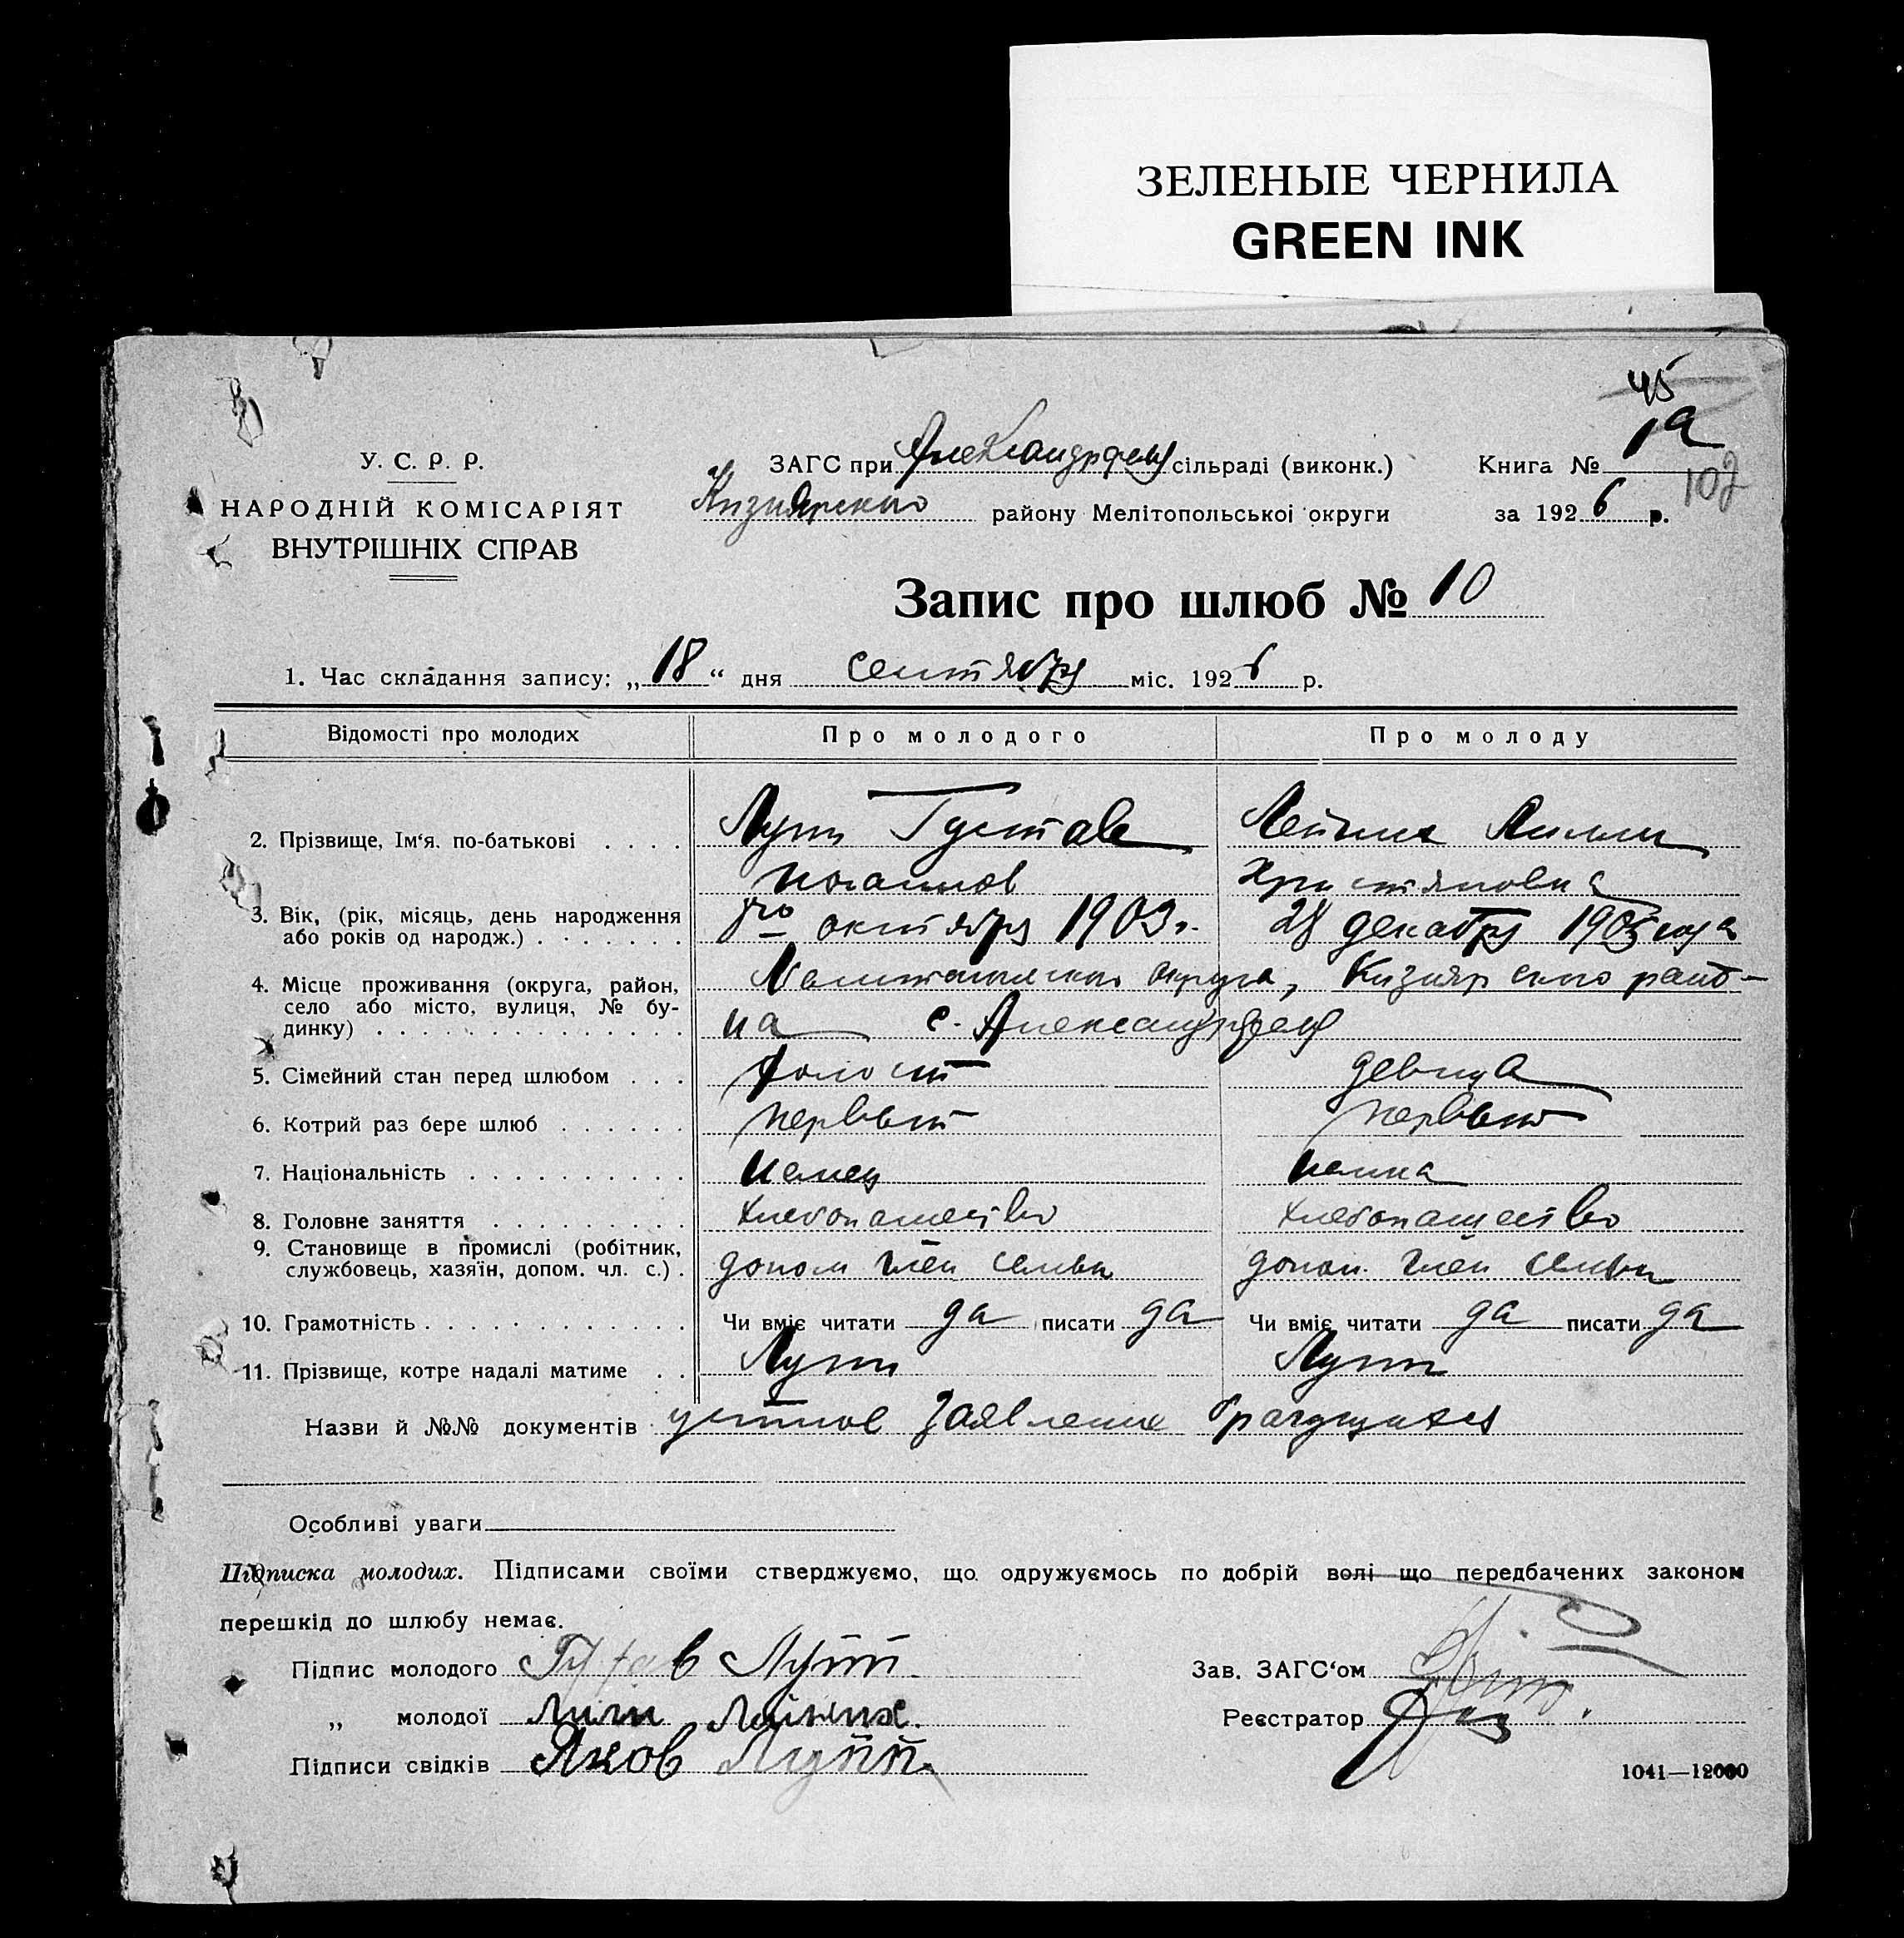 ЗЕЛЕНЫЕ ЧЕРНИЛА
GREEN INK
45
1а
102
У. С. Р. Р.
НАРОДНІЙ КОМІСАРІЯТ
ВНУТРІШНІХ СПРАВ
ЗАГС при Александрфельд сільраді (виконк.)
Кизиярского району Мелітопольської округи
Книга №
за 1926 р.
Запис про шлюб № 10
1. Час складання запису: „18“ дня сентября міс. 1926 р.
Відомості про молодих Про молодого Про молоду
2. Прізвище, Ім‘я. по-батькові Лутт Густав Лейних Лилли
Христяновна
3. Вік, (рік, місяць, день народження
або років од народж.) 8го октября 1903 г. 28 декабря 1905 года
4. Місце проживання (округа, район,
село або місто, вулиця, № бу-
динку)
Мелитопольского округа, Кизиярского райо-
на с. Александрфельд
5. Сімейний стан перед шлюбом холост девица
6. Котрий раз бере шлюб первый первый
7. Національність немец немка
8. Головне заняття хлебопашество хлебопашество
9. Становище в промислі (робітник,
службовець, хазяїн, допом. чл. с.) допом член семьи допом. член семьи
10. Грамотність Чи вміє читати да писати да Чи вміє читати да писати да
11. Прізвище, котре надалі матиме Лутт Лутт
Назви й №№ документів устное заявление брачущихся
Особливі уваги
Підписка молодих. Підписами своїми стверджуємо, що одружуємось по добрій волі що передбачених законом
перешкід до шлюбу немає.
Підпис молодого Густав Лутт
„ молодої Лили Лейних.
Підписи свідків Яков Лутт
Зав. ЗАГС‘ом
Реєстратор
1041—12000